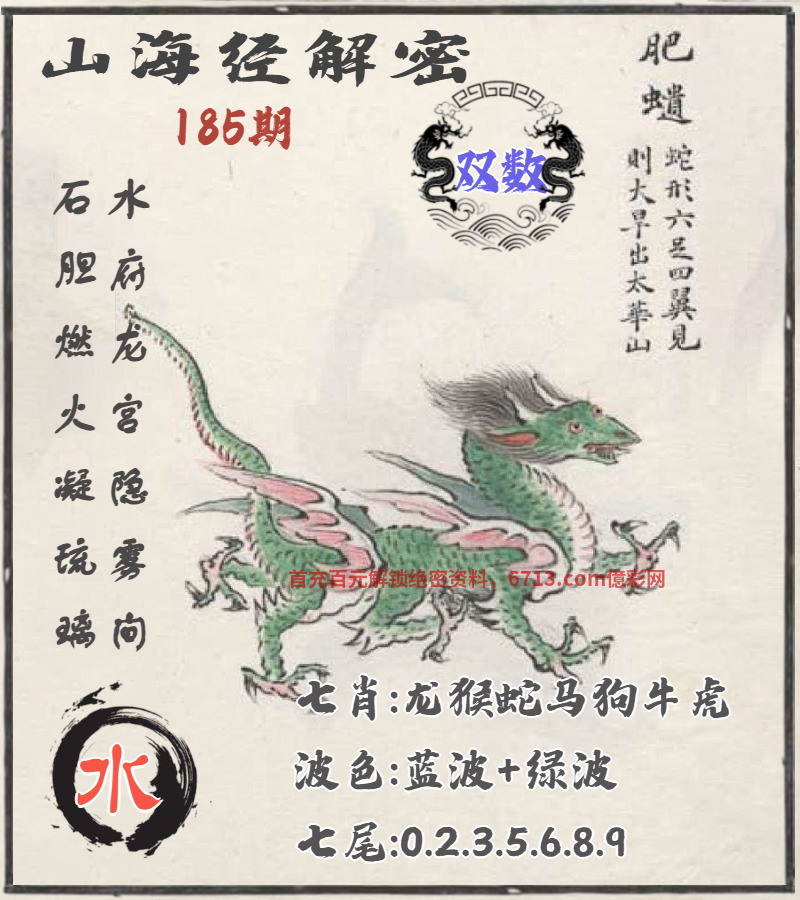 山海经解密
185期
双数
肥䗡
蛇形六足四翼見
則大旱出太華山
水府龙宫隐雾间
石胆燃火凝琉璃
首充百元解锁绝密资料，6713.com億彩网
七肖:龙猴蛇马狗牛虎
水
波色:蓝波+绿波
七尾:0.2.3.5.6.8.9